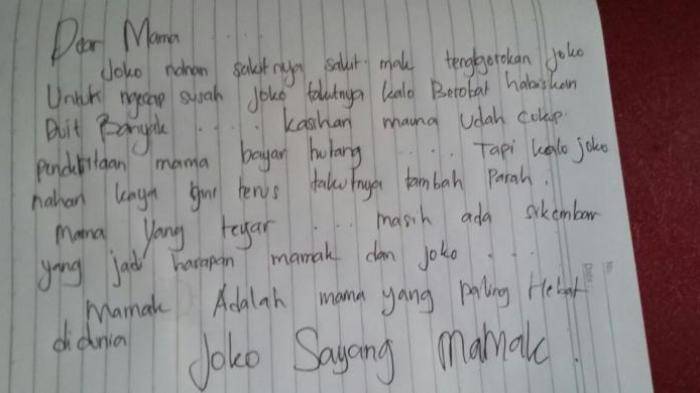 Dear Mama ....
Joko nahan sakitnya sakit mak tenggorokan joko
Untuk ngecap susah joko takutnya kalo Berobat habiskan
Duit Banyak .... kasihan mama udah cukup
penderitaan mama bayar hutang .... Tapi kalo joko
nahan kaya gini terus takutnya tambah Parah.
Mama Yang tegar ... masih ada sikembar
yang jadi harapan mamak dan joko ...
Mamak Adalah mama yang paling Hebat
didunia
Joko Sayang Mamak.